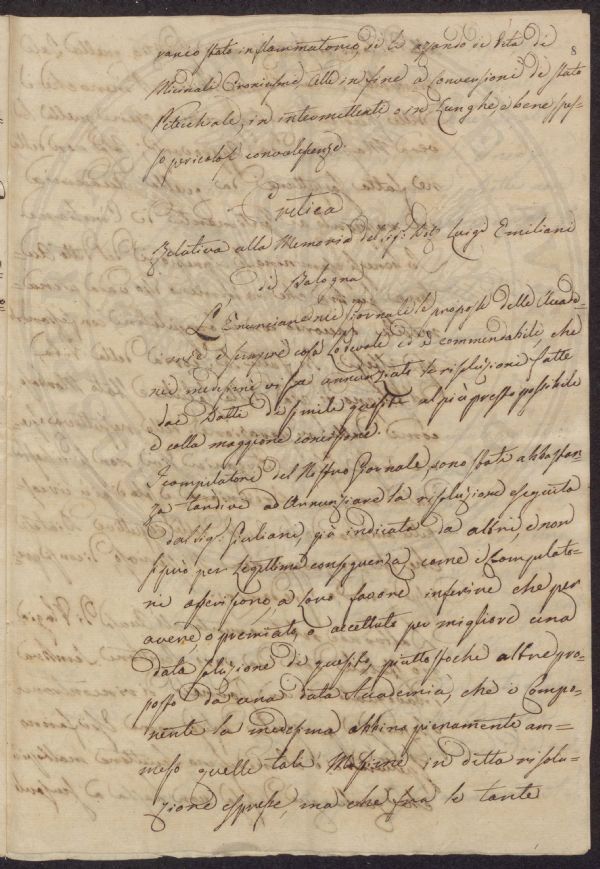 8
stato infiammatorio, di
in fine a conversioni di stato
Petecchiale, in intermittenti o in lunghe e bene spes=
so pericolose convalescenze.
Critica
Relativa alla Memoria del Sig. Luigi Emiliani
di Bologna
L'Enunciare nei Giornali le proposte delle Accade=
mie è sempre cosa lodevole ed è commendabile, che
nei medesimi vi sia annunziata la risoluzione fatta
dai Dotti di simile quesiti al più presto possibile
e colla maggiore concisione.
I compilatori del Nostro Giornale, sono stati abbastan=
za tardivi ad Annunziare la risoluzione eseguita
dal Sig. già indicata da altri, e non
si può per legittima conseguenza, come i Compilato=
ri asseriscono, a loro favore inferire che per
avere, o premiato, o accettato per migliore una
data soluzione di quesito, piuttosto che altre pro=
posto da una data Accademia, che i Compo=
nenti la medesima abbino pienamente am=
messo quelle tali Massime in detta risolu=
zione espresse, ma che fra le tante